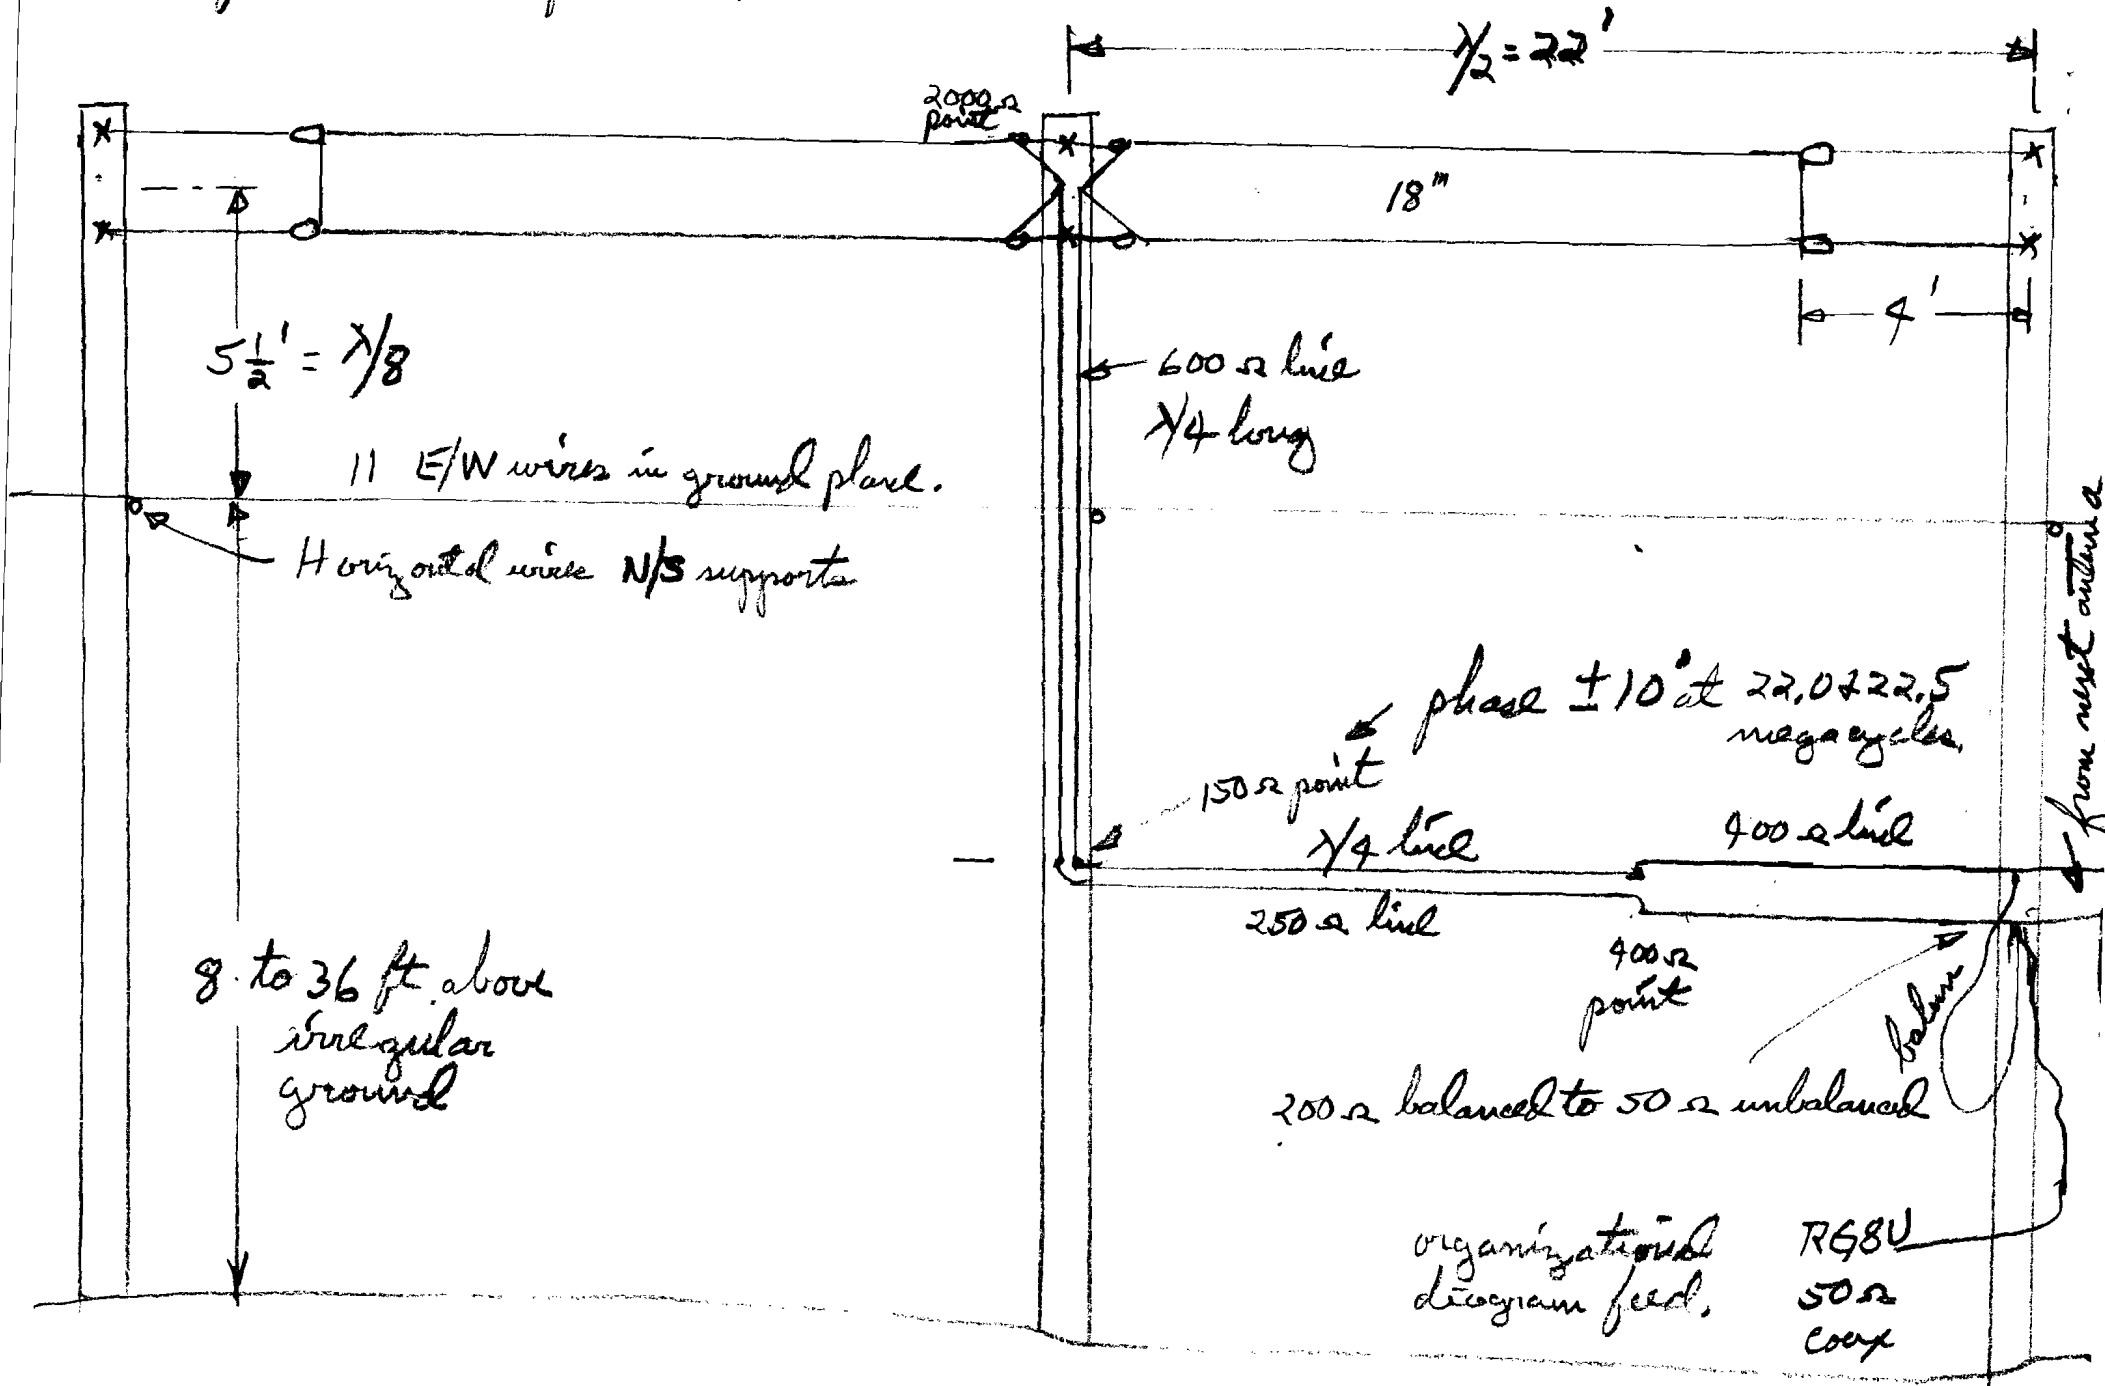 λ/2 = 22'
2000 Ω
point
18"
4'
5 1/2' = λ/8
600 Ω line
λ/4 long
11 E/W wires in ground plane.
Horizontal wire N/S supports
phase ±10° at 22.0 & 22.5
megacycles.
from next antenna
150 Ω point
λ/4 line
400 Ω line
250 Ω line
400 Ω
point
8 to 36 ft. above
irregular
ground
balun
200 Ω balanced to 50 Ω unbalanced
organizational
diagram feed.
RG8U
50 Ω
coax